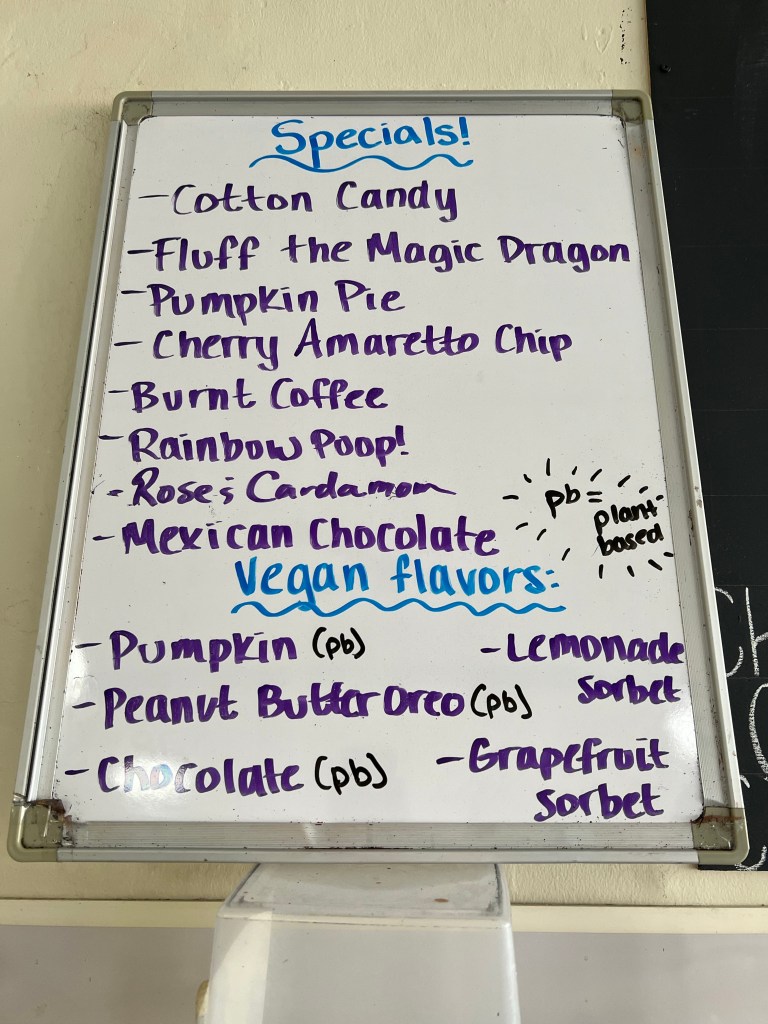 Specials!
- Cotton Candy
- Fluff the Magic Dragon
- Pumpkin Pie
- Cherry Amaretto Chip
- Burnt Coffee
- Rainbow Poop!
- Rose & Cardamom
- Mexican Chocolate
pb =
plant-
based
Vegan flavors:
- Pumpkin (pb)
- Peanut Butter Oreo (pb)
- Chocolate (pb)
- Lemonade
Sorbet
- Grapefruit
Sorbet